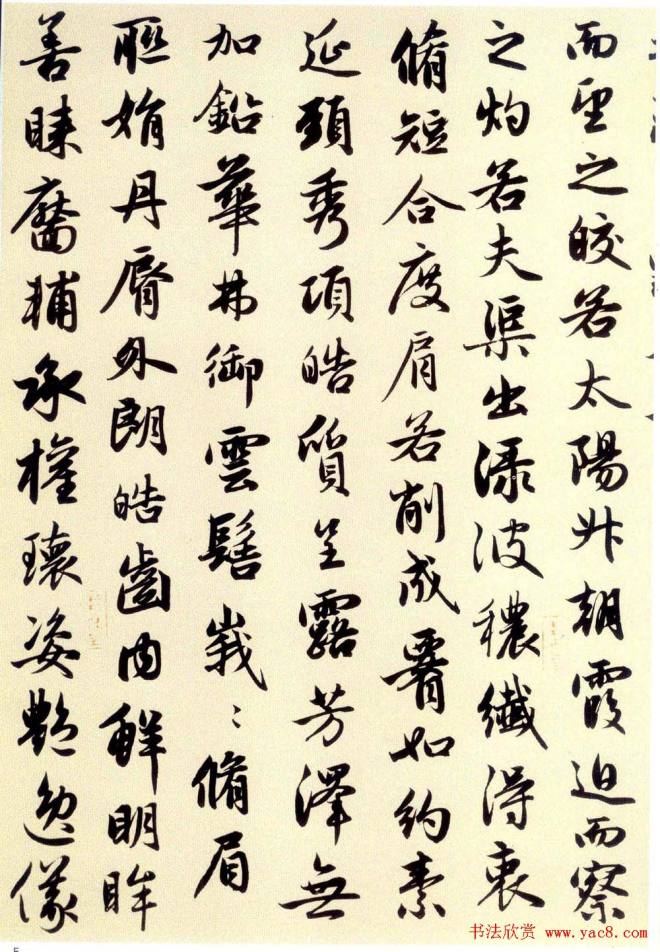 而望之皎若太陽升朝霞迫而察
之灼若夫渠出渌波穠纖得衷
脩短合度肩若削成要如約素
延頸秀項皓質呈露芳澤無
加鉛華弗御雲髻峩〻脩眉
聮娟丹脣外朗皓齒内鮮明眸
善睞靨輔承權瓌姿艷逸儀
书法欣赏 www.yac8.com